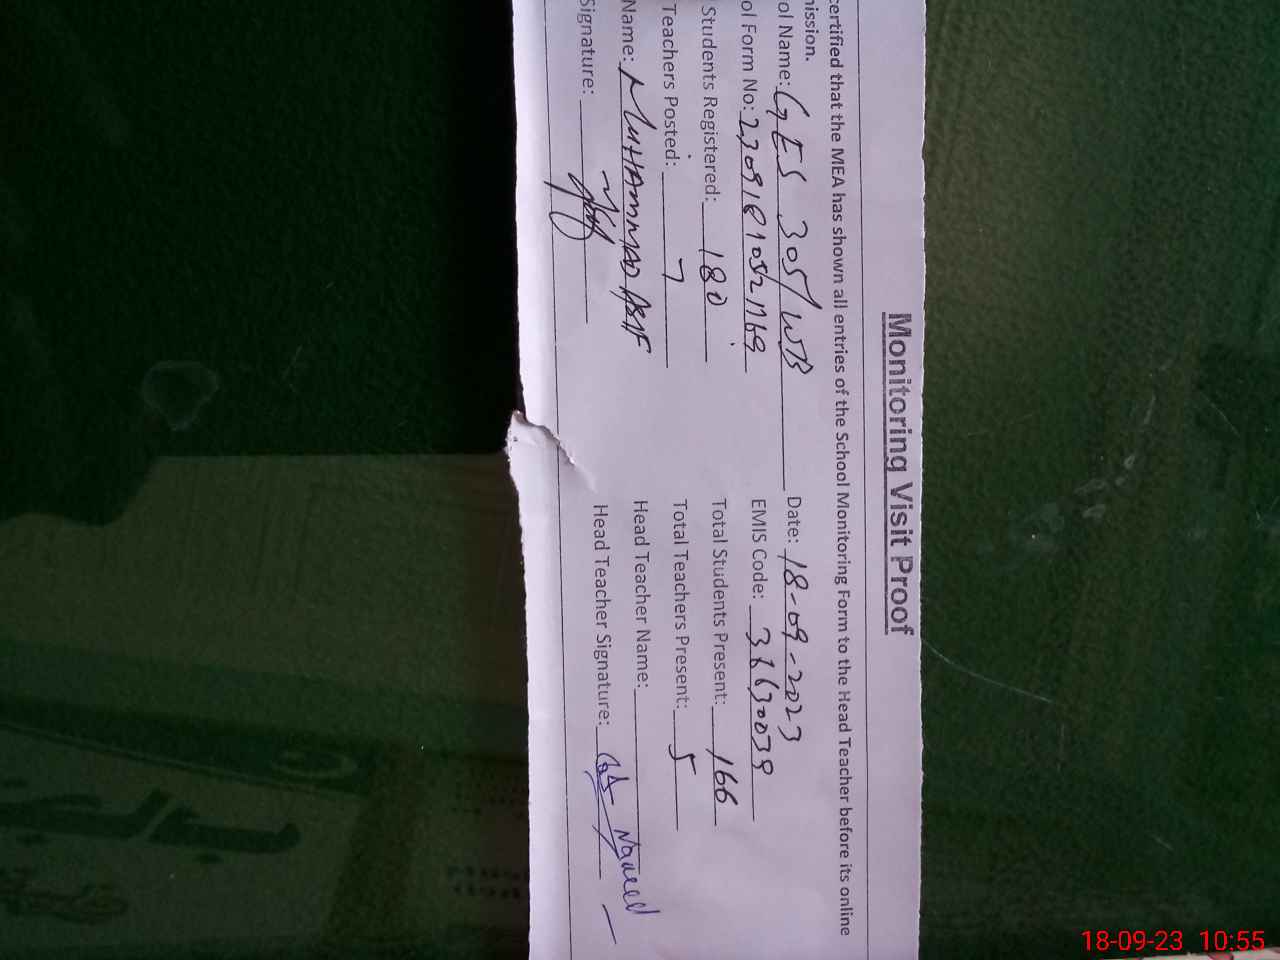 Monitoring Visit Proof
certified that the MEA has shown all entries of the School Monitoring Form to the Head Teacher before its online
mission.
ol Name: GES 305/WB Date: 18-09-2023
ol Form No: EMIS Code:
Students Registered: 180 Total Students Present: 166
Teachers Posted: 7 Total Teachers Present: 5
Name: MUHAMMAD ASIF Head Teacher Name:
Signature: Head Teacher Signature:
18-09-23 10:55